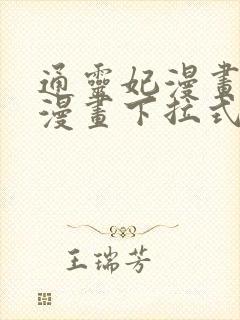 通靈妃漫畫
漫畫下拉式
王瑞芳